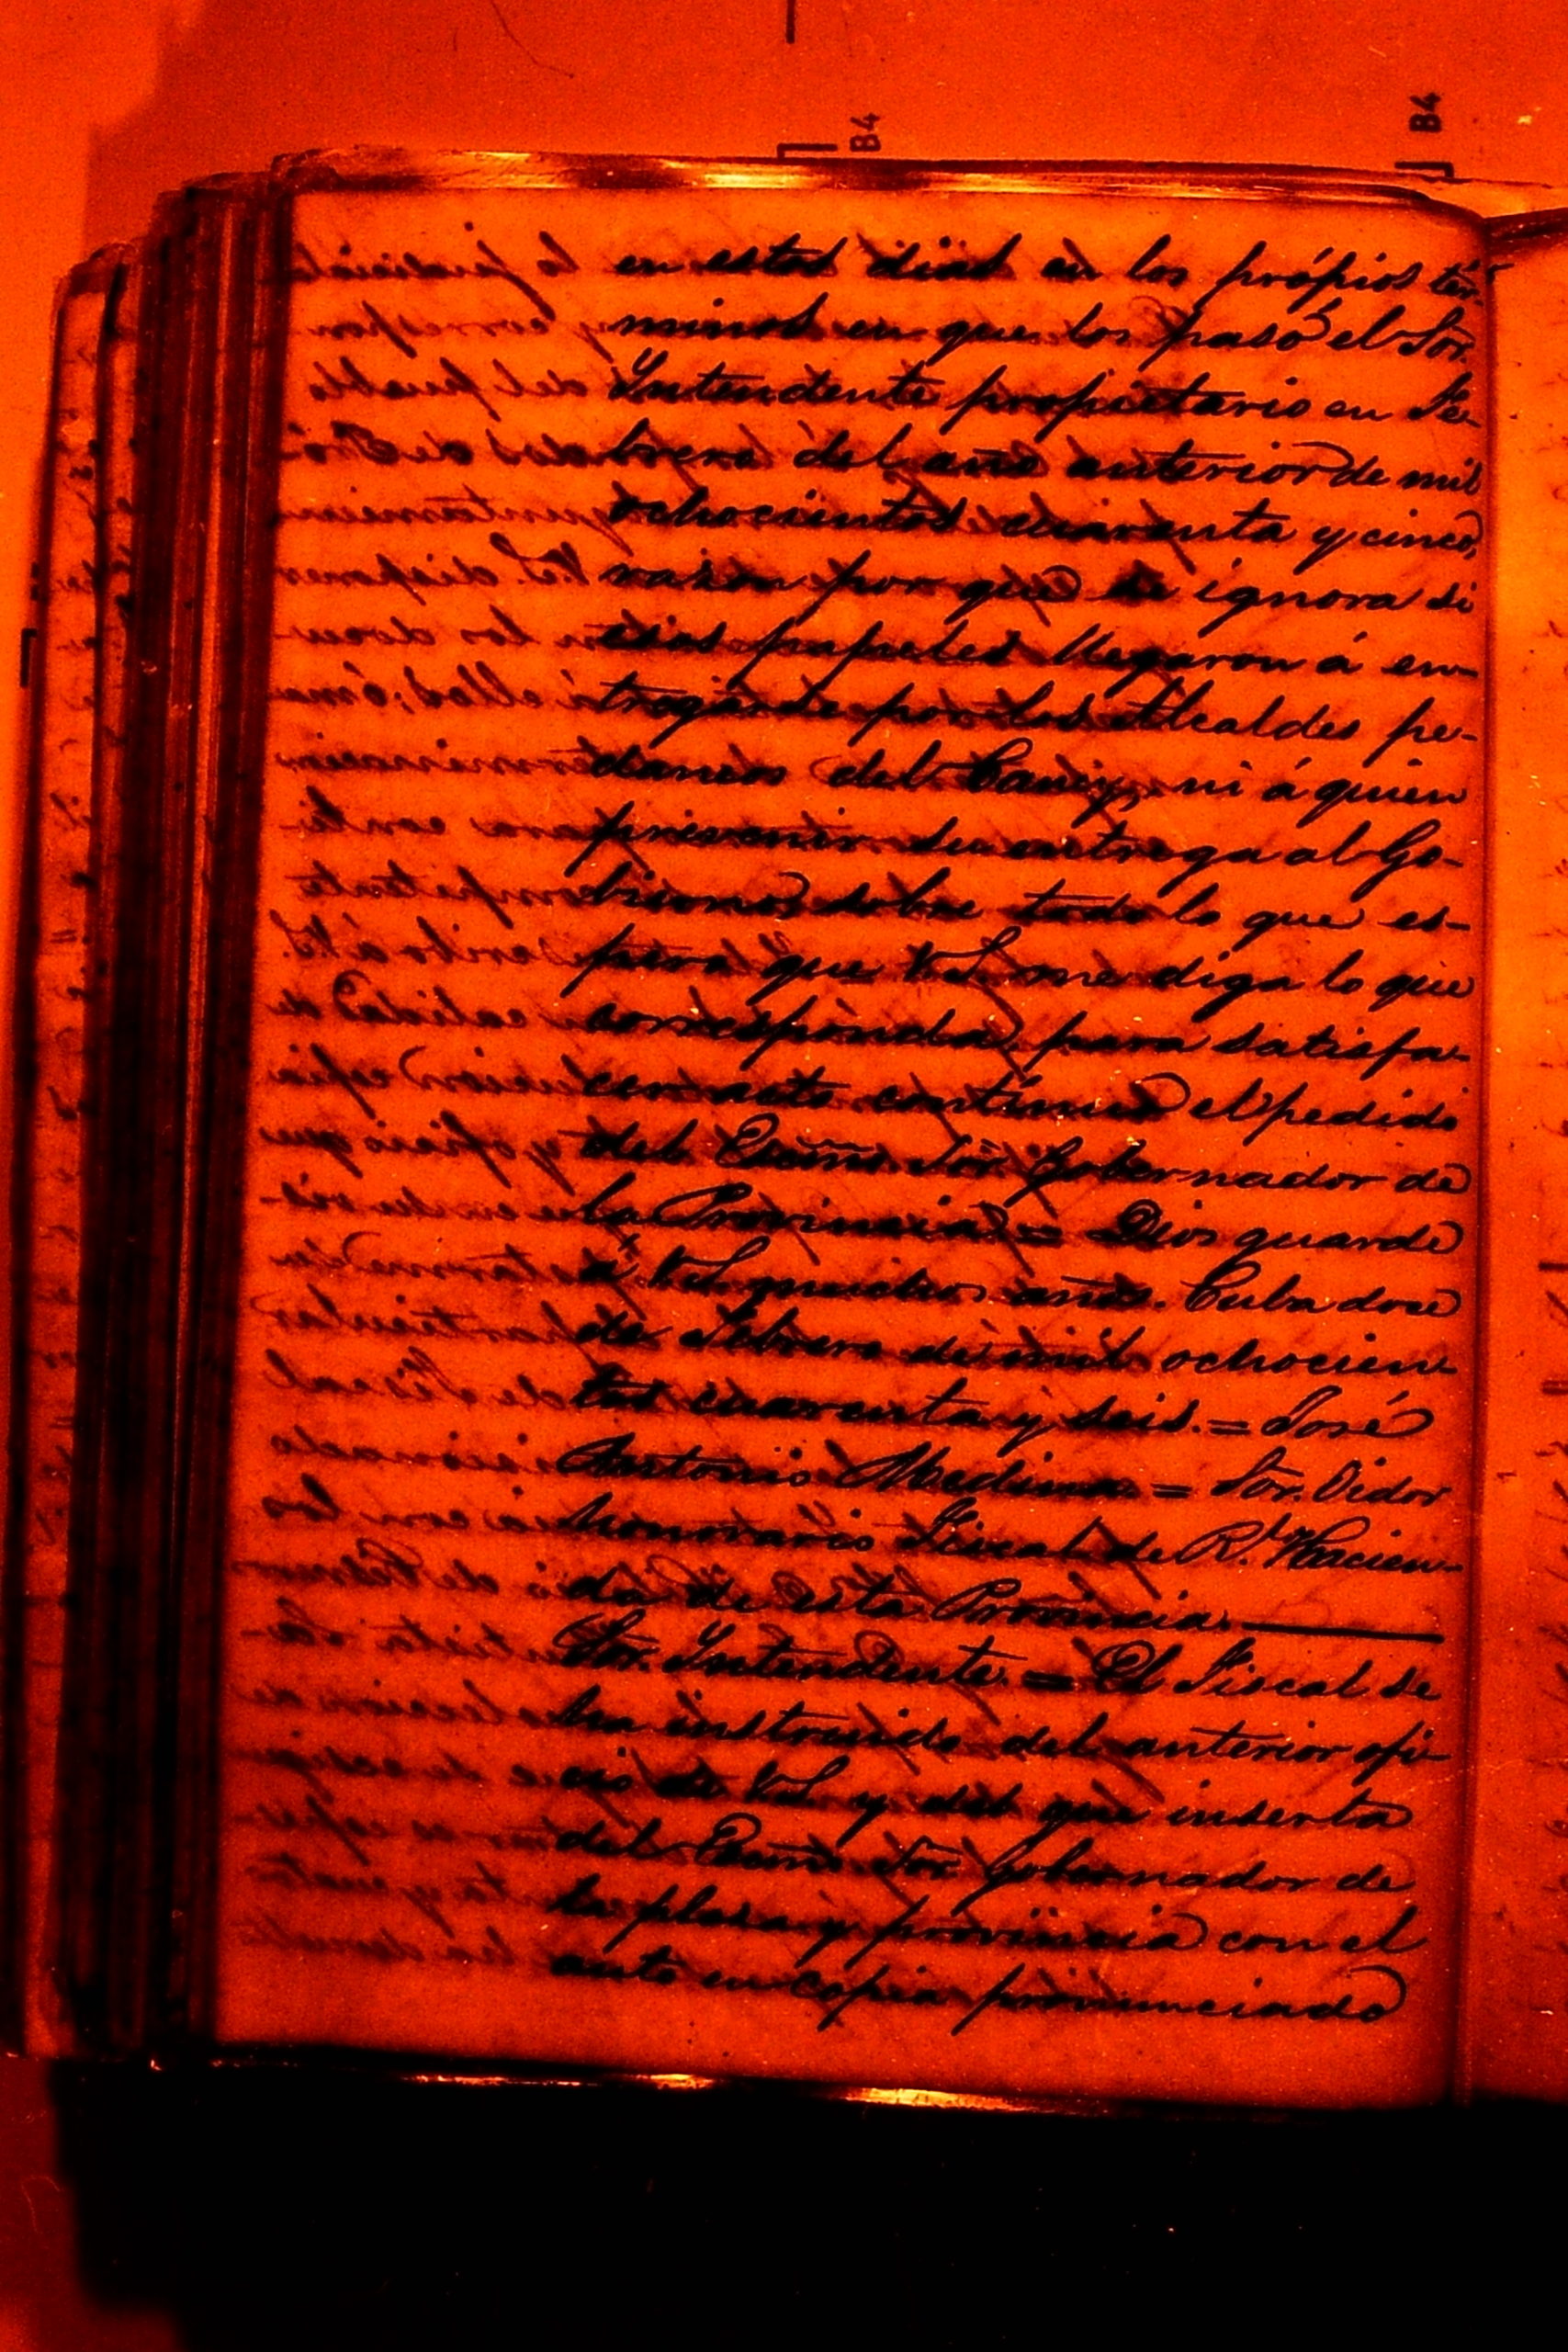 B4
B4
en estos dias en los própios tér-
minos en que los pasó el Sor.
Intendente propietario en Fe-
brero del año anterior de mil
ochocientos cuarenta y cinco,
razon por que se ignora si
esos papeles llegaron á en-
tregarse por los Alcaldes pe-
daneos del Caney, ni á quien
prevenir su entrega al Go-
bierno, sobre todo lo que es-
pero que V.S. me diga lo que
corresponda, para satisfa-
cer acto continuo el pedido
del Exmo. Sor. Gobernador de
la Provincia = Dios guarde
á V.S. muchos años. Cuba doce
de Febrero de mil ochocien-
tos cuarenta y seis. = José
Antonio Medina = Sor. Oidor
honorario Fiscal de Rl. Hacien-
da de esta Provincia.
Sor. Intendente. = El Fiscal se
ha instruido del anterior ofi-
cio de V.S. y del que inserta
del Exmo. Sor. Gobernador de
la plaza y provincia con el
auto en copia pronunciado